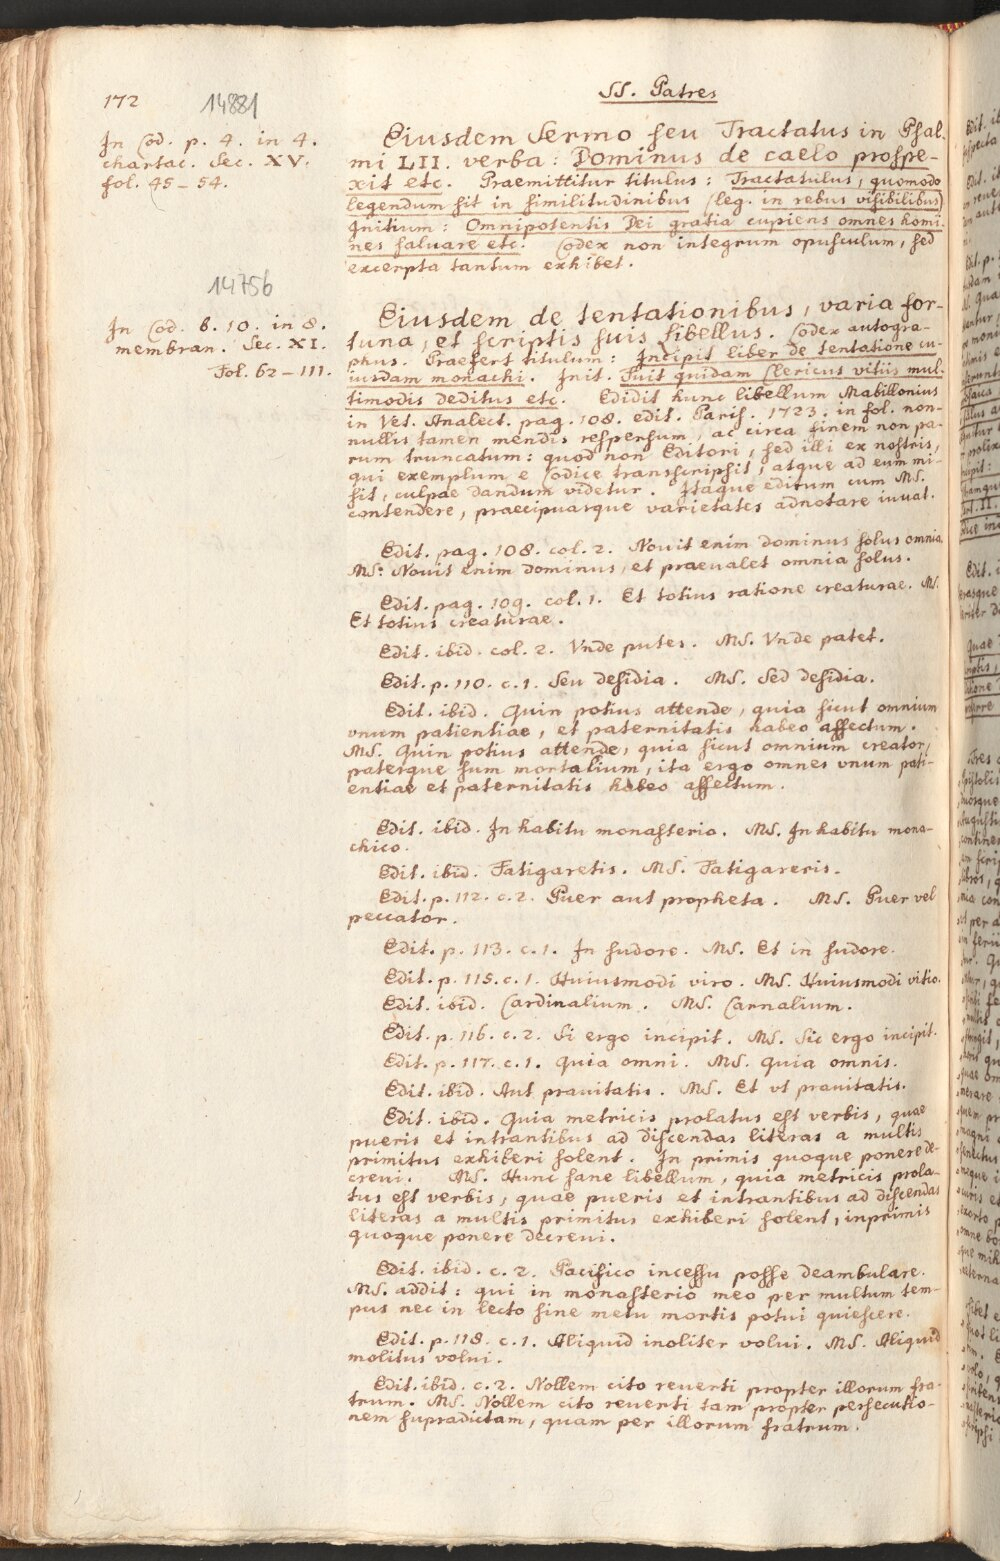 172
14881
SS. Patres
In Cod. p. 4. in 4.
chartac. Sec. XV.
fol. 45 – 54.
Eiusdem Sermo seu Tractatus in Psal.
mi LII. verba: Dominus de caelo prospe-
xit etc. Praemittitur titulus: Tractatulus, quomodo
legendum sit in similitudinibus (leg. in rebus visibilibus)
Initium: Omnipotentis Dei gratia cupiens omnes homi-
nes saluare etc. Codex non integrum opusculum, sed
excerpta tantum exhibet.
14756
In Cod. b. 10. in 8.
membran. Sec. XI.
Fol. 62 – 111.
Eiusdem de tentationibus, varia for-
tuna, et scriptis suis Libellus. Codex autogra-
phus. Praefert titulum: Incipit liber de tentatione cu-
iusdam monachi. Init. Fuit quidam Clericus vitiis mul-
timodis deditus etc. Edidit hunc libellum Mabillonius
in Vet. Analect. pag. 108. edit. Paris. 1723. in fol. non-
nullis tamen mendis respersum, ac circa finem non pa-
rum truncatum: quod non Editori, sed illi ex nostris,
qui exemplum e Codice transscripsit, atque ad eum mi-
sit, culpae dandum videtur. Itaque editum cum MS.
contendere, praecipuasque varietates adnotare iuuat.
Edit. pag. 108. col. 2. Nouit enim dominus solus omnia.
MS: Nouit enim dominus, et praeualet omnia solus.
Edit. pag. 109. col. 1. Et totius ratione creaturae. MS.
Et totius creaturae.
Edit. ibid. col. 2. Vnde putes. MS. Vnde patet.
Edit. p. 110. c. 1. Seu desidia. MS. Sed desidia.
Edit. ibid. Quin potius attende, quia sicut omnium
vnum patientiae, et paternitatis habeo affectum.
MS. Quin potius attende, quia sicut omnium creator,
paterque sum mortalium, ita ergo omnes vnum pati-
entiae et paternitatis habeo affectum.
Edit. ibid. In habitu monasterio. MS. In habitu mona-
chico.
Edit. ibid. Fatigaretis. MS. Fatigareris.
Edit. p. 112. c. 2. Puer aut propheta. MS. Puer vel
peccator.
Edit. p. 113. c. 1. In sudore. MS. Et in sudore.
Edit. p. 115. c. 1. Huiusmodi viro. MS. Huiusmodi vitio.
Edit. ibid. Cardinalium. MS. Carnalium.
Edit. p. 116. c. 2. Si ergo incipit. MS. Sic ergo incipit.
Edit. p. 117. c. 1. Quia omni. MS. Quia omnis.
Edit. ibid. Aut prauitatis. MS. Et vt prauitatis.
Edit. ibid. Quia metricis prolatus est verbis, quae
pueris et intrantibus ad discendas literas a multis
primitus exhiberi solent. In primis quoque ponere de-
creui. MS. Hunc sane libellum, quia metricis prola-
tus est verbis, quae pueris et intrantibus ad discendas
literas a multis primitus exhiberi solent, inprimis
quoque ponere decreui.
Edit. ibid. c. 2. Pacifico incessu posse deambulare.
MS. addit: qui in monasterio meo per multum tem-
pus nec in lecto sine metu mortis potui quiescere.
Edit. p. 118. c. 1. Aliquid inoliter volui. MS. Aliquid
molitus volui.
Edit. ibid. c. 2. Nollem cito reuerti propter illorum fra-
trum. MS. Nollem cito reuerti tam propter persecutio-
nem supradictam, quam per illorum fratrum.